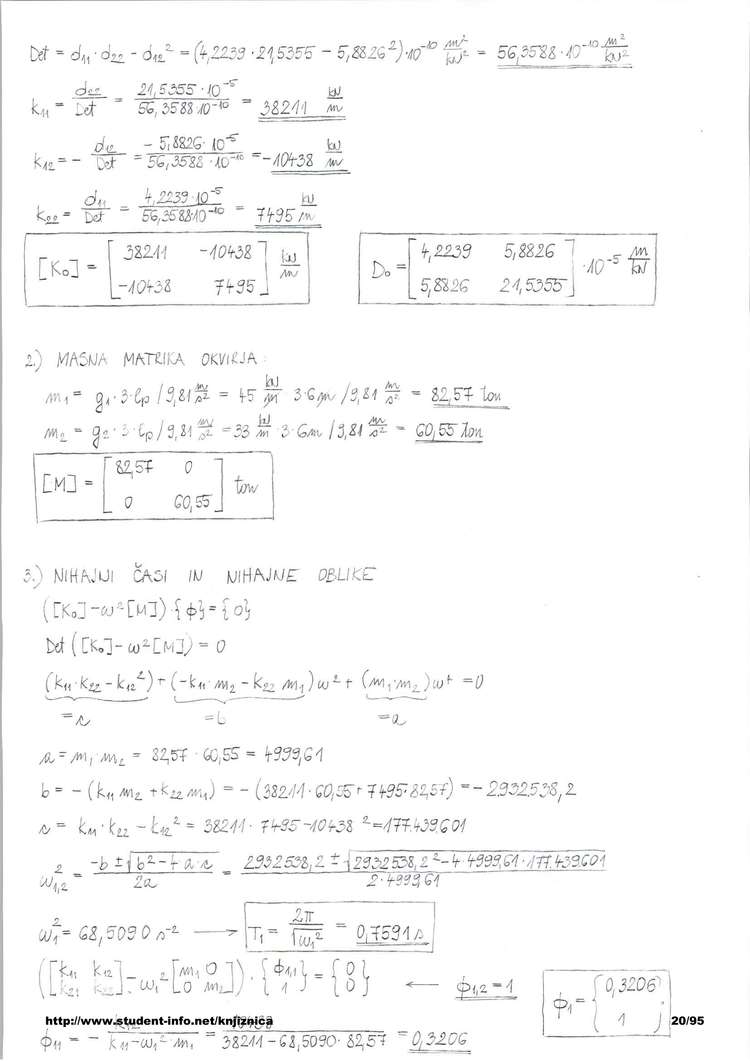 Det = d₁₁ · d₂₂ - d₁₂² = (4,2239 · 21,5355 - 5,8826²) · 10⁻¹⁰ m²/kN² = 56,3588 · 10⁻¹⁰ m²/kN²
k₁₁ = d₂₂/Det = 21,5355 · 10⁻⁵/56,3588·10⁻¹⁰ = 38211 kN/m
k₁₂ = - d₁₂/Det = - 5,8826 · 10⁻⁵/56,3588 · 10⁻¹⁰ = -10438 kN/m
k₂₂ = d₁₁/Det = 4,2239 · 10⁻⁵/56,3588·10⁻¹⁰ = 7495 kN/m
[K₀] = [38211 -10438; -10438 7495] kN/m
D₀ = [4,2239 5,8826; 5,8826 21,5355] · 10⁻⁵ m/kN
2.) MASNA MATRIKA OKVIRJA:
m₁ = g₁ · 3 · lp / 9,81 m/s² = 45 kN/m 3·6m / 9,81 m/s² = 82,57 ton
m₂ = g₂ · 3 · lp / 9,81 m/s² = 33 kN/m 3·6m / 9,81 m/s² = 60,55 ton
[M] = [82,57 0; 0 60,55] ton
3.) NIHAJNI ČASI IN NIHAJNE OBLIKE
([K₀] - ω²[M])·{ϕ} = {0}
Det ([K₀] - ω²[M]) = 0
(k₁₁·k₂₂ - k₁₂²) + (-k₁₁·m₂ - k₂₂ m₁) ω² + (m₁·m₂) ω⁴ = 0
= c = b = a
a = m₁·m₂ = 82,57 · 60,55 = 4999,61
b = - (k₁₁ m₂ + k₂₂ m₁) = - (38211 · 60,55 + 7495·82,57) = - 2932538,2
c = k₁₁ · k₂₂ - k₁₂² = 38211 · 7495 - 10438² = 177.439.601
ω²₁,₂ = -b ± √(b² - 4·a·c)/2a = 2932538,2 ± √(2932538,2² - 4·4999,61·177.439.601)/2·4999,61
ω₁² = 68,5090 s⁻² → T₁ = 2π/√ω₁² = 0,7591 s
([k₁₁ k₁₂; k₂₁ k₂₂] - ω₁² [m₁ 0; 0 m₂]) · {ϕ₁,₁; 1} = {0; 0} ← ϕ₁,₂ = 1
ϕ₁ = {0,3206; 1}
http://www.student-info.net/knjiznica 20/95
ϕ₁₁ = - k₁₁ - ω₁² · m₁ = 38211 - 68,5090 · 82,57 = 0,3206